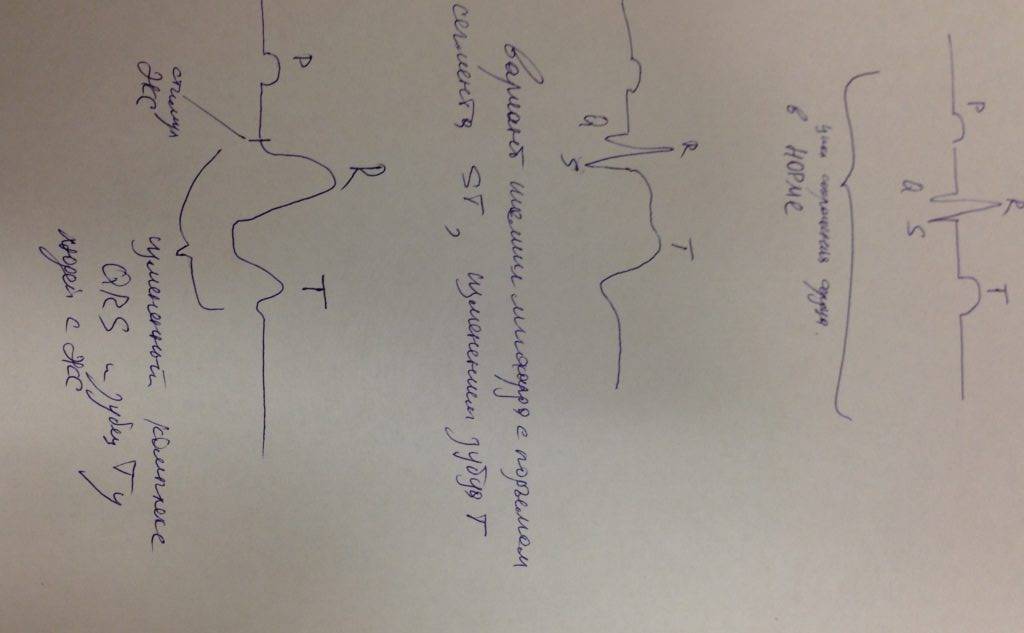 P
Q
R
S
T
цикл сокращения сердца
в НОРМЕ
Q
R
S
T
вариант ишемии миокарда с подъемом
сегмента ST, изменением зубца T
P
стимул
ЭКС
R
T
измененный комплекс
QRS и зубец T у
людей с ЭКС